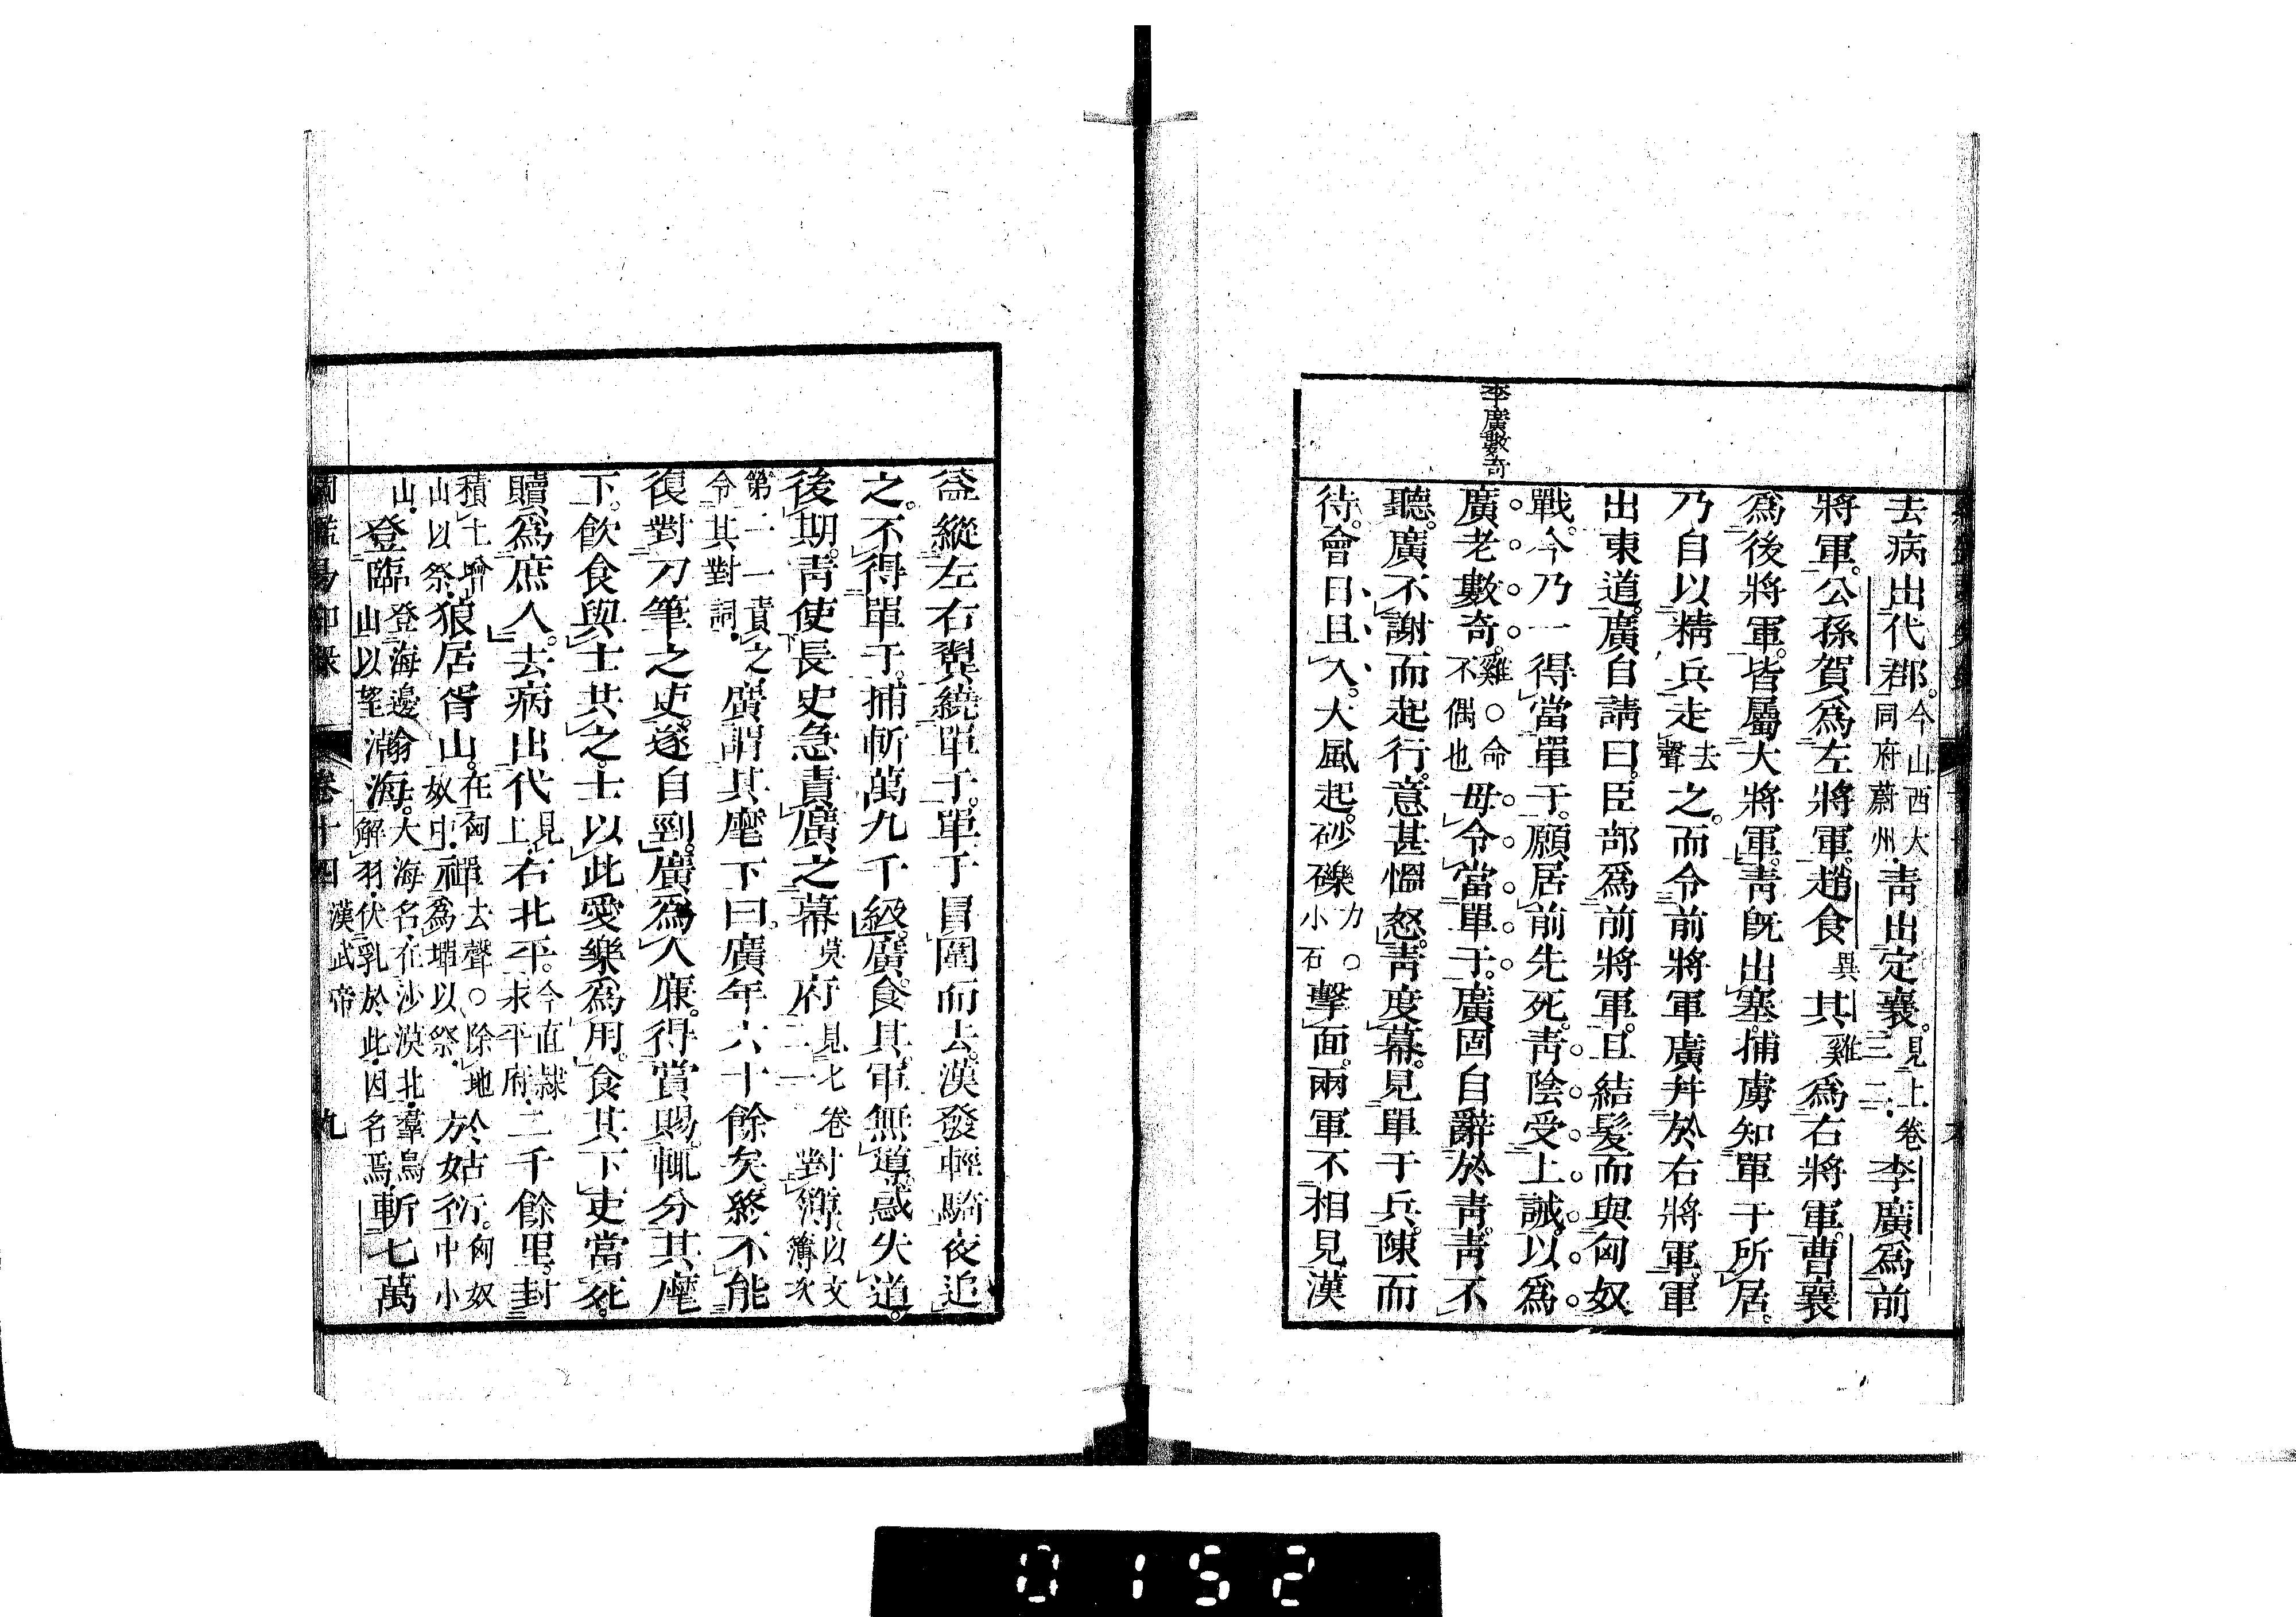 李廣數奇
去病出代郡。今山西大同府蔚州。青出定襄。見上卷三二。李廣爲前
將軍。公孫賀爲左將軍。趙食異其雞奚爲右將軍。曹襄
爲後將軍。皆屬大將軍。青既出塞。捕虜知單于所居。
乃自以精兵走去聲之。而令前將軍廣幷於右將軍。軍
出東道。廣自請曰。臣部爲前將軍。且結髮而與匈奴
戰。今乃一得當單于。願居前先死。青陰受上誡。以爲
廣老數奇。雞○命不偶也毋令當單于。廣固自辭於青。青不
聽。廣不謝而起行。意甚慍怒。青度幕。見單于兵。陳而
待。會日且入。大風起。砂礫力○小石擊面。兩軍不相見。漢
益縱左右翼繞單于。單于冒圍而去。漢發輕騎夜追
之。不得單于。捕斬萬九千級。廣食其軍無導。惑失道。
後期。青使長史急責廣之幕莫府見七卷二一對簿。以文簿次
第二一責之令其對詞。廣謂其麾下曰。廣年六十餘矣。終不能
復對刀筆之吏。遂自剄。廣爲人廉。得賞賜。輒分其麾
下。飲食與士共之。士以此愛樂爲用。食其下吏當死。
贖爲庶人。去病出代見上。右北平。今直隸永平府。二千餘里。封
積土增山以祭。狼居胥山。在匈奴中。禪去聲○除地爲墠以祭。於姑衍。匈奴中小
山。登臨登海邊山以望瀚翰海。大海名。在沙漠北。羣鳥解羽。伏乳於此。因名焉。斬七萬
卷十四 漢武帝 九